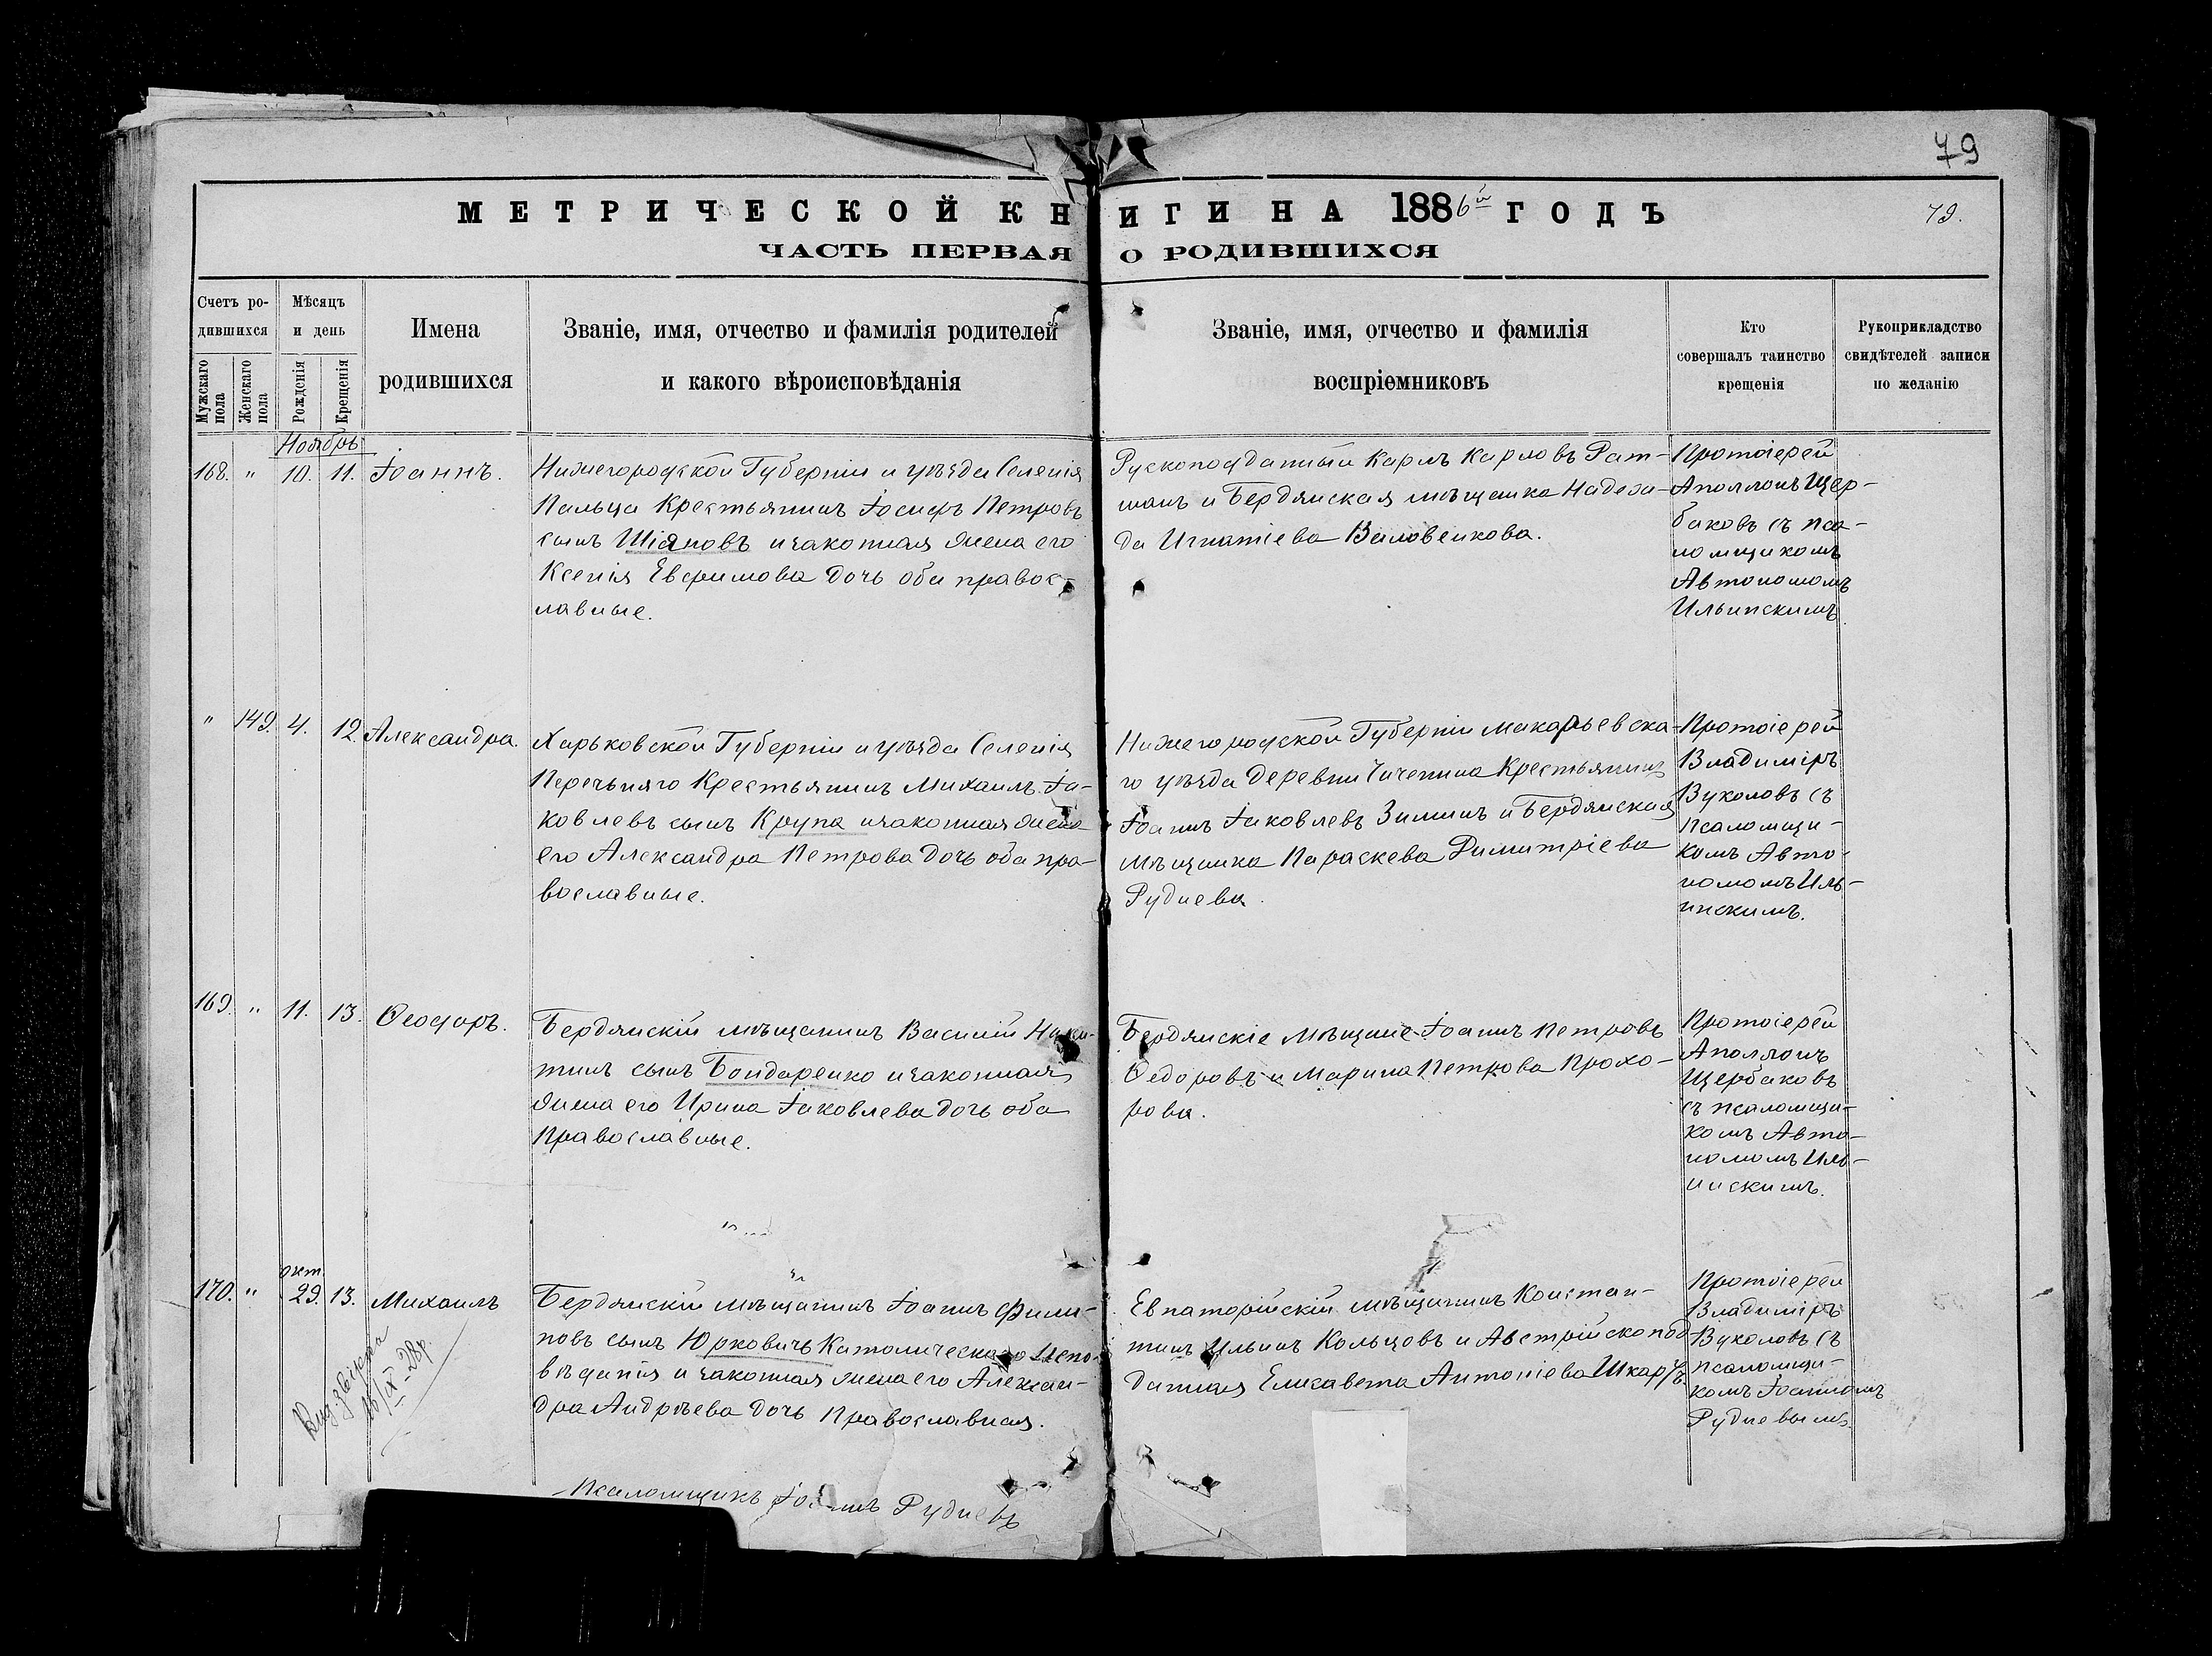 79
МЕТРИЧЕСКОЙ КНИГИ НА 1886й ГОДЪ
79.
ЧАСТЬ ПЕРВАЯ О РОДИВШИХСЯ
Счетъ ро-
дившихся
Мужскаго пола
Женскаго пола
Мѣсяцъ
и день
Рожденія
Крещенія
Имена
родившихся
Званіе, имя, отчество и фамилія родителей
и какого вѣроисповѣданія
Званіе, имя, отчество и фамилія
воспріемниковъ
Кто
совершалъ таинство
крещенія
Рукоприкладство
свидѣтелей записи
по желанію
Ноябрь
168. " 10. 11. Іоаннъ.
Нижегородской Губерніи и уѣзда Селенія
Пальца Крестьянинъ Іосифъ Петровъ
сынъ Шіяновъ и законная жена его
Ксенія Евфимова дочь оба правос-
лавные.
Рускоподданный Карлъ Карловъ Рат-
манъ и Бердянская мѣщанка Надеж-
да Игнатіева
Протоіерей
Аполлонъ Щер-
баковъ съ пса-
ломщикомъ
Автономомъ
Ильинскимъ.
" 149. 4. 12. Александра.
Харьковской Губерніи и уѣзда Селенія
Перечьняго Крестьянинъ Михаилъ Іа-
ковлевъ сынъ Крупа и законная жена
его Александра Петрова дочь оба пра-
вославные.
Нижегородской Губерніи Макарьевска-
го уѣзда деревни Крестьянинъ
Іоаннъ Іаковлевъ Зиминъ и Бердянская
Мѣщанка Параскева Димитріева
Руднева.
Протоіерей
Владиміръ
Вуколовъ съ
псаломщи-
комъ Авто-
номомъ Иль-
инскимъ.
169. " 11. 13. Ѳеодоръ.
Бердянскій мѣщанинъ Василій Ники-
тинъ сынъ Бондаренко и законная
жена его Ирина Іаковлева дочь оба
Православные.
Бердянскіе Мѣщане Іоаннъ Петровъ
Ѳедоровъ и Марина Петрова Прохо-
рова.
Протоіерей
Аполлонъ
Щербаковъ
съ псаломщи-
комъ Авто-
номомъ Иль-
инскимъ.
окт.
170. " 29. 13. Михаилъ
Бердянскій мѣщанинъ Іоаннъ Фили-
повъ сынъ Юрковичъ Католическаго испо-
вѣданія и законная жена его Алексан-
дра Андрѣева дочь Православная.
Евпаторійскій мѣщанинъ Констан-
тинъ Ильинъ Кольцовъ и Австрійскопод
данная Елисавета Антоніева
Протоіерей
Владиміръ
Вуколовъ съ
псаломщи-
комъ Іоанномъ
Рудневымъ.
16/IX-28р.
Псаломщикъ Іоаннъ Рудневъ